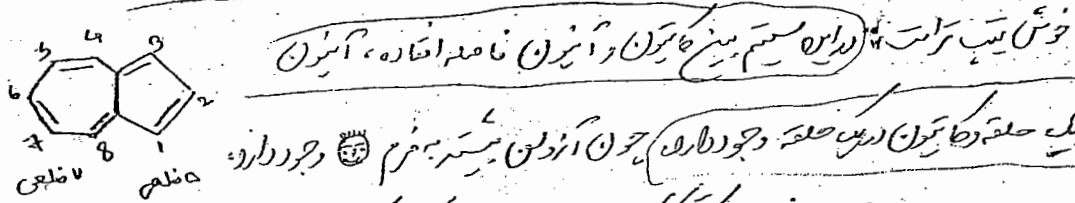 خوش تیپ تر است؛ در این سیستم بین کاتیون و آنیون فاصله افتاده، آنیون
یک حلقه و کاتیون در یک حلقه وجود دارد) چون آزولن بیشتر به فرم وجود دارد،
3
4
5
6
2
7
8
1
۷ ضلعی
۵ ضلعی